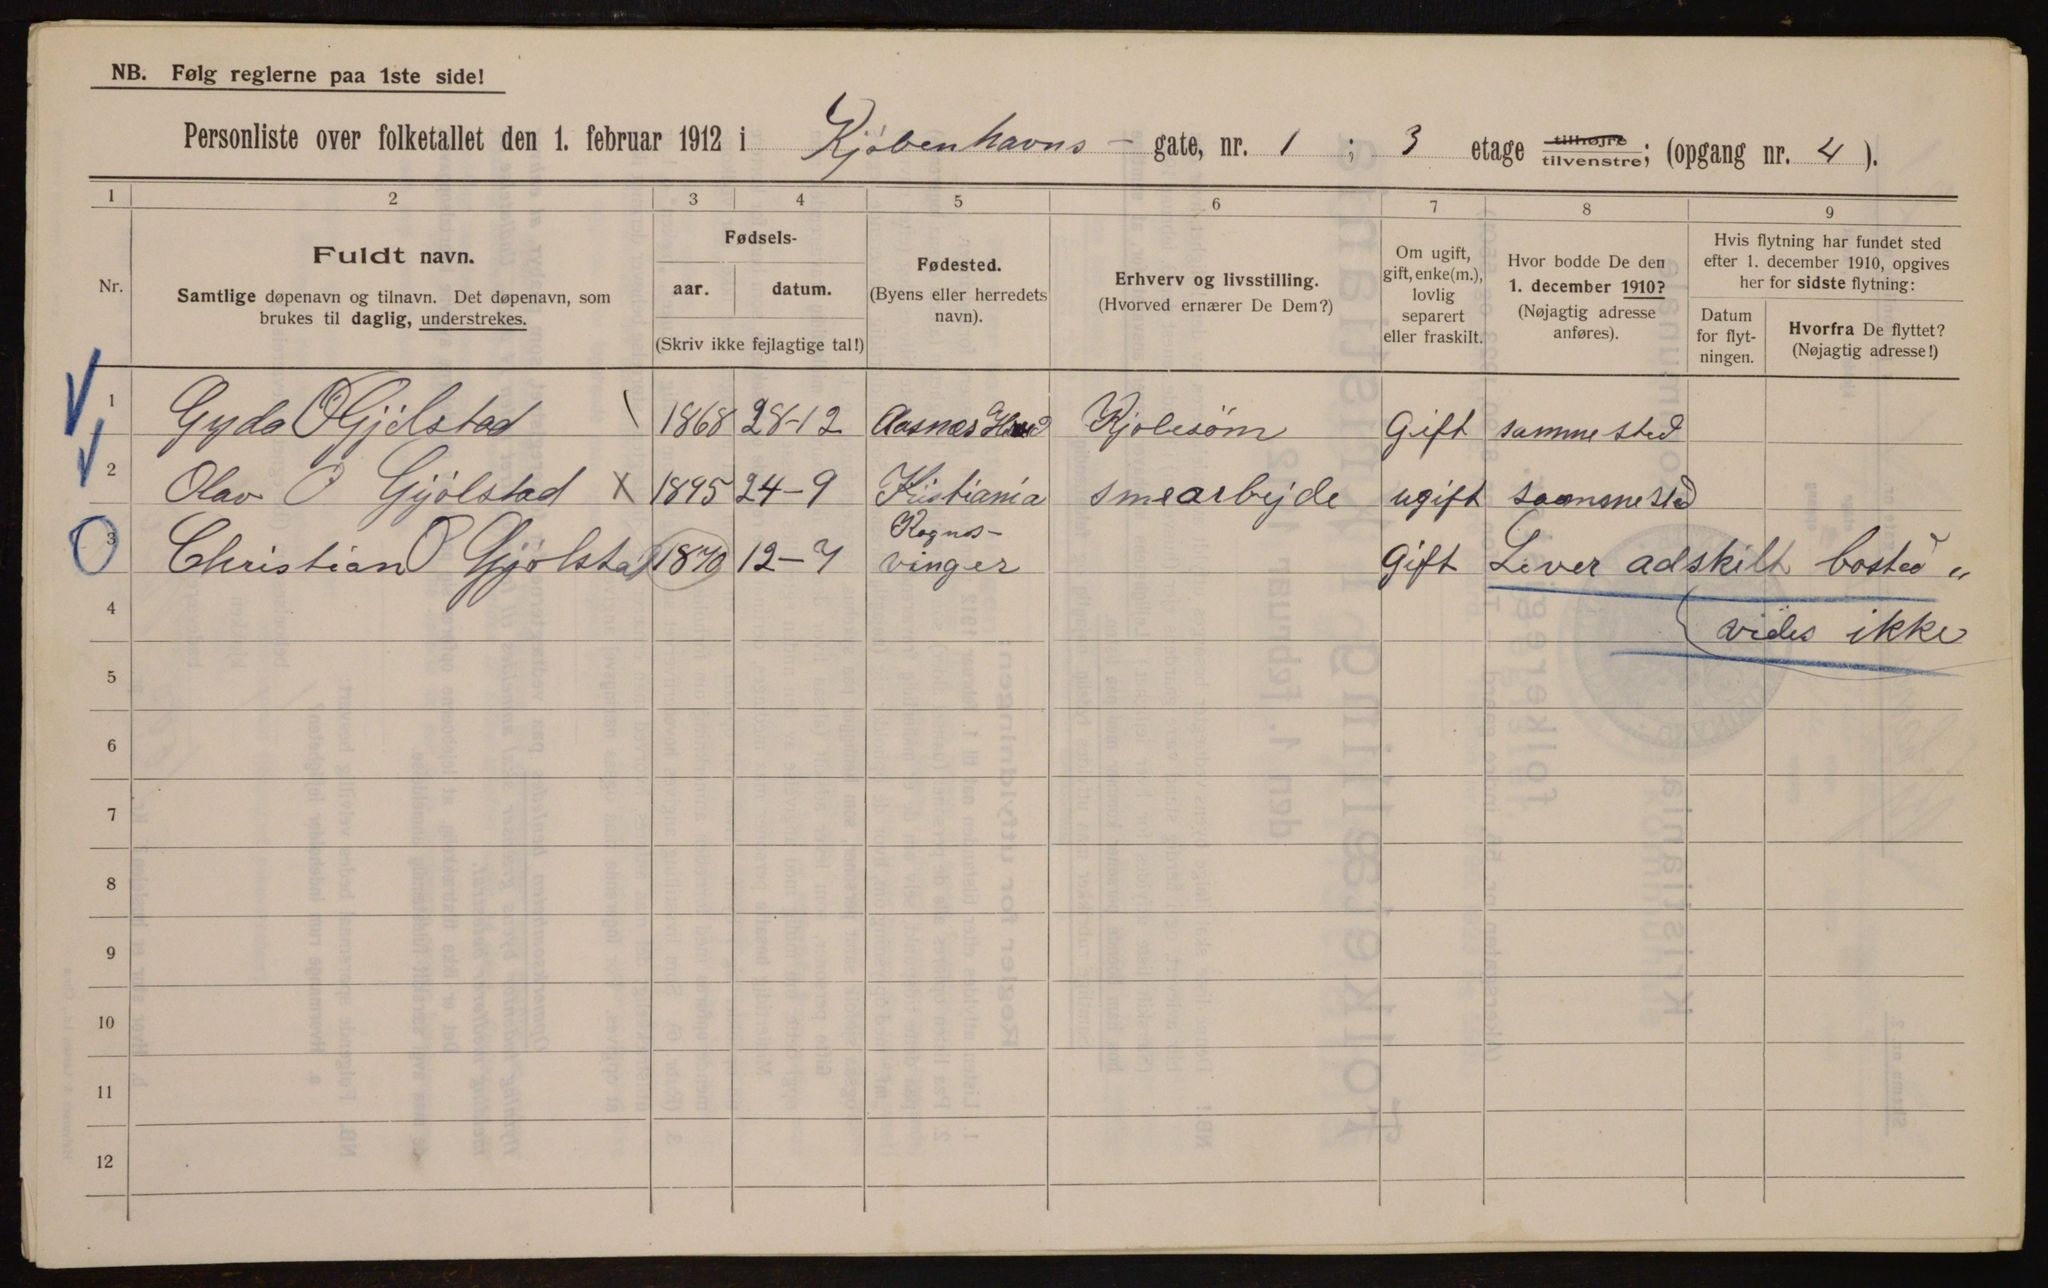 NB. Følg reglerne paa 1ste side!
Personliste over folketallet den 1. februar 1912 i Kjøbenhavns- gate, nr. 1 ; 3 etage tilhøjre tilvenstre; (opgang nr. 4 ).
1 2 3 4 5 6 7 8 9
Nr.
Fuldt navn.
Samtlige døpenavn og tilnavn. Det døpenavn, som
brukes til daglig, understrekes.
Fødsels-
aar. datum.
(Skriv ikke fejlagtige tal!)
Fødested.
(Byens eller herredets
navn).
Erhverv og livsstilling.
(Hvorved ernærer De Dem?)
Om ugift,
gift, enke(m.),
lovlig
separert
eller fraskilt.
Hvor bodde De den
1. december 1910?
(Nøjagtig adresse
anføres).
Hvis flytning har fundet sted
efter 1. december 1910, opgives
her for sidste flytning:
Datum
for flyt-
ningen.
Hvorfra De flyttet?
(Nøjagtig adresse!)
1 Gyda O Gjølstad \ 1868 28-12 Aasnæs Kjolesøm Gift sammested
2 Olav O Gjølstad X 1895 24-9 Kristiania smearbejde ugift sammested
3 Christian O Gjølstad 1870 12-7 Kognos-
vinger Gift Lever adskilt bosted „
4 vides ikke
5
6
7
8
9
10
11
12